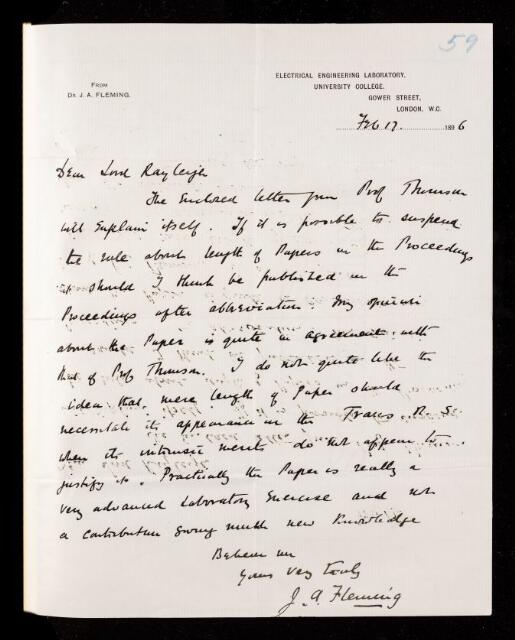 59
ELECTRICAL ENGINEERING LABORATORY,
UNIVERSITY COLLEGE,
GOWER STREET,
LONDON, W.C.
FROM
DR. J. A. FLEMING.
Feb 17. 1896
Dear Lord Rayleigh
The Enclosed letter from Prof Thomson
will Explain itself. If it is possible to suspend
the rule about length of Papers in the Proceedings
it should I think be published in the
Proceedings after abbreviation. My opinion
about the Paper is quite in agreement with
that of Prof Thomson. I do not quite like the
idea that mere length of Paper should
necessitate its appearance in the Trans. R. S.
when its intrinsic merits do not appear to
justify it. Practically the Paper is really a
very advanced Laboratory Exercise and not
a contribution giving much new Knowledge
Believe me
Yours very truly
J. A. Fleming